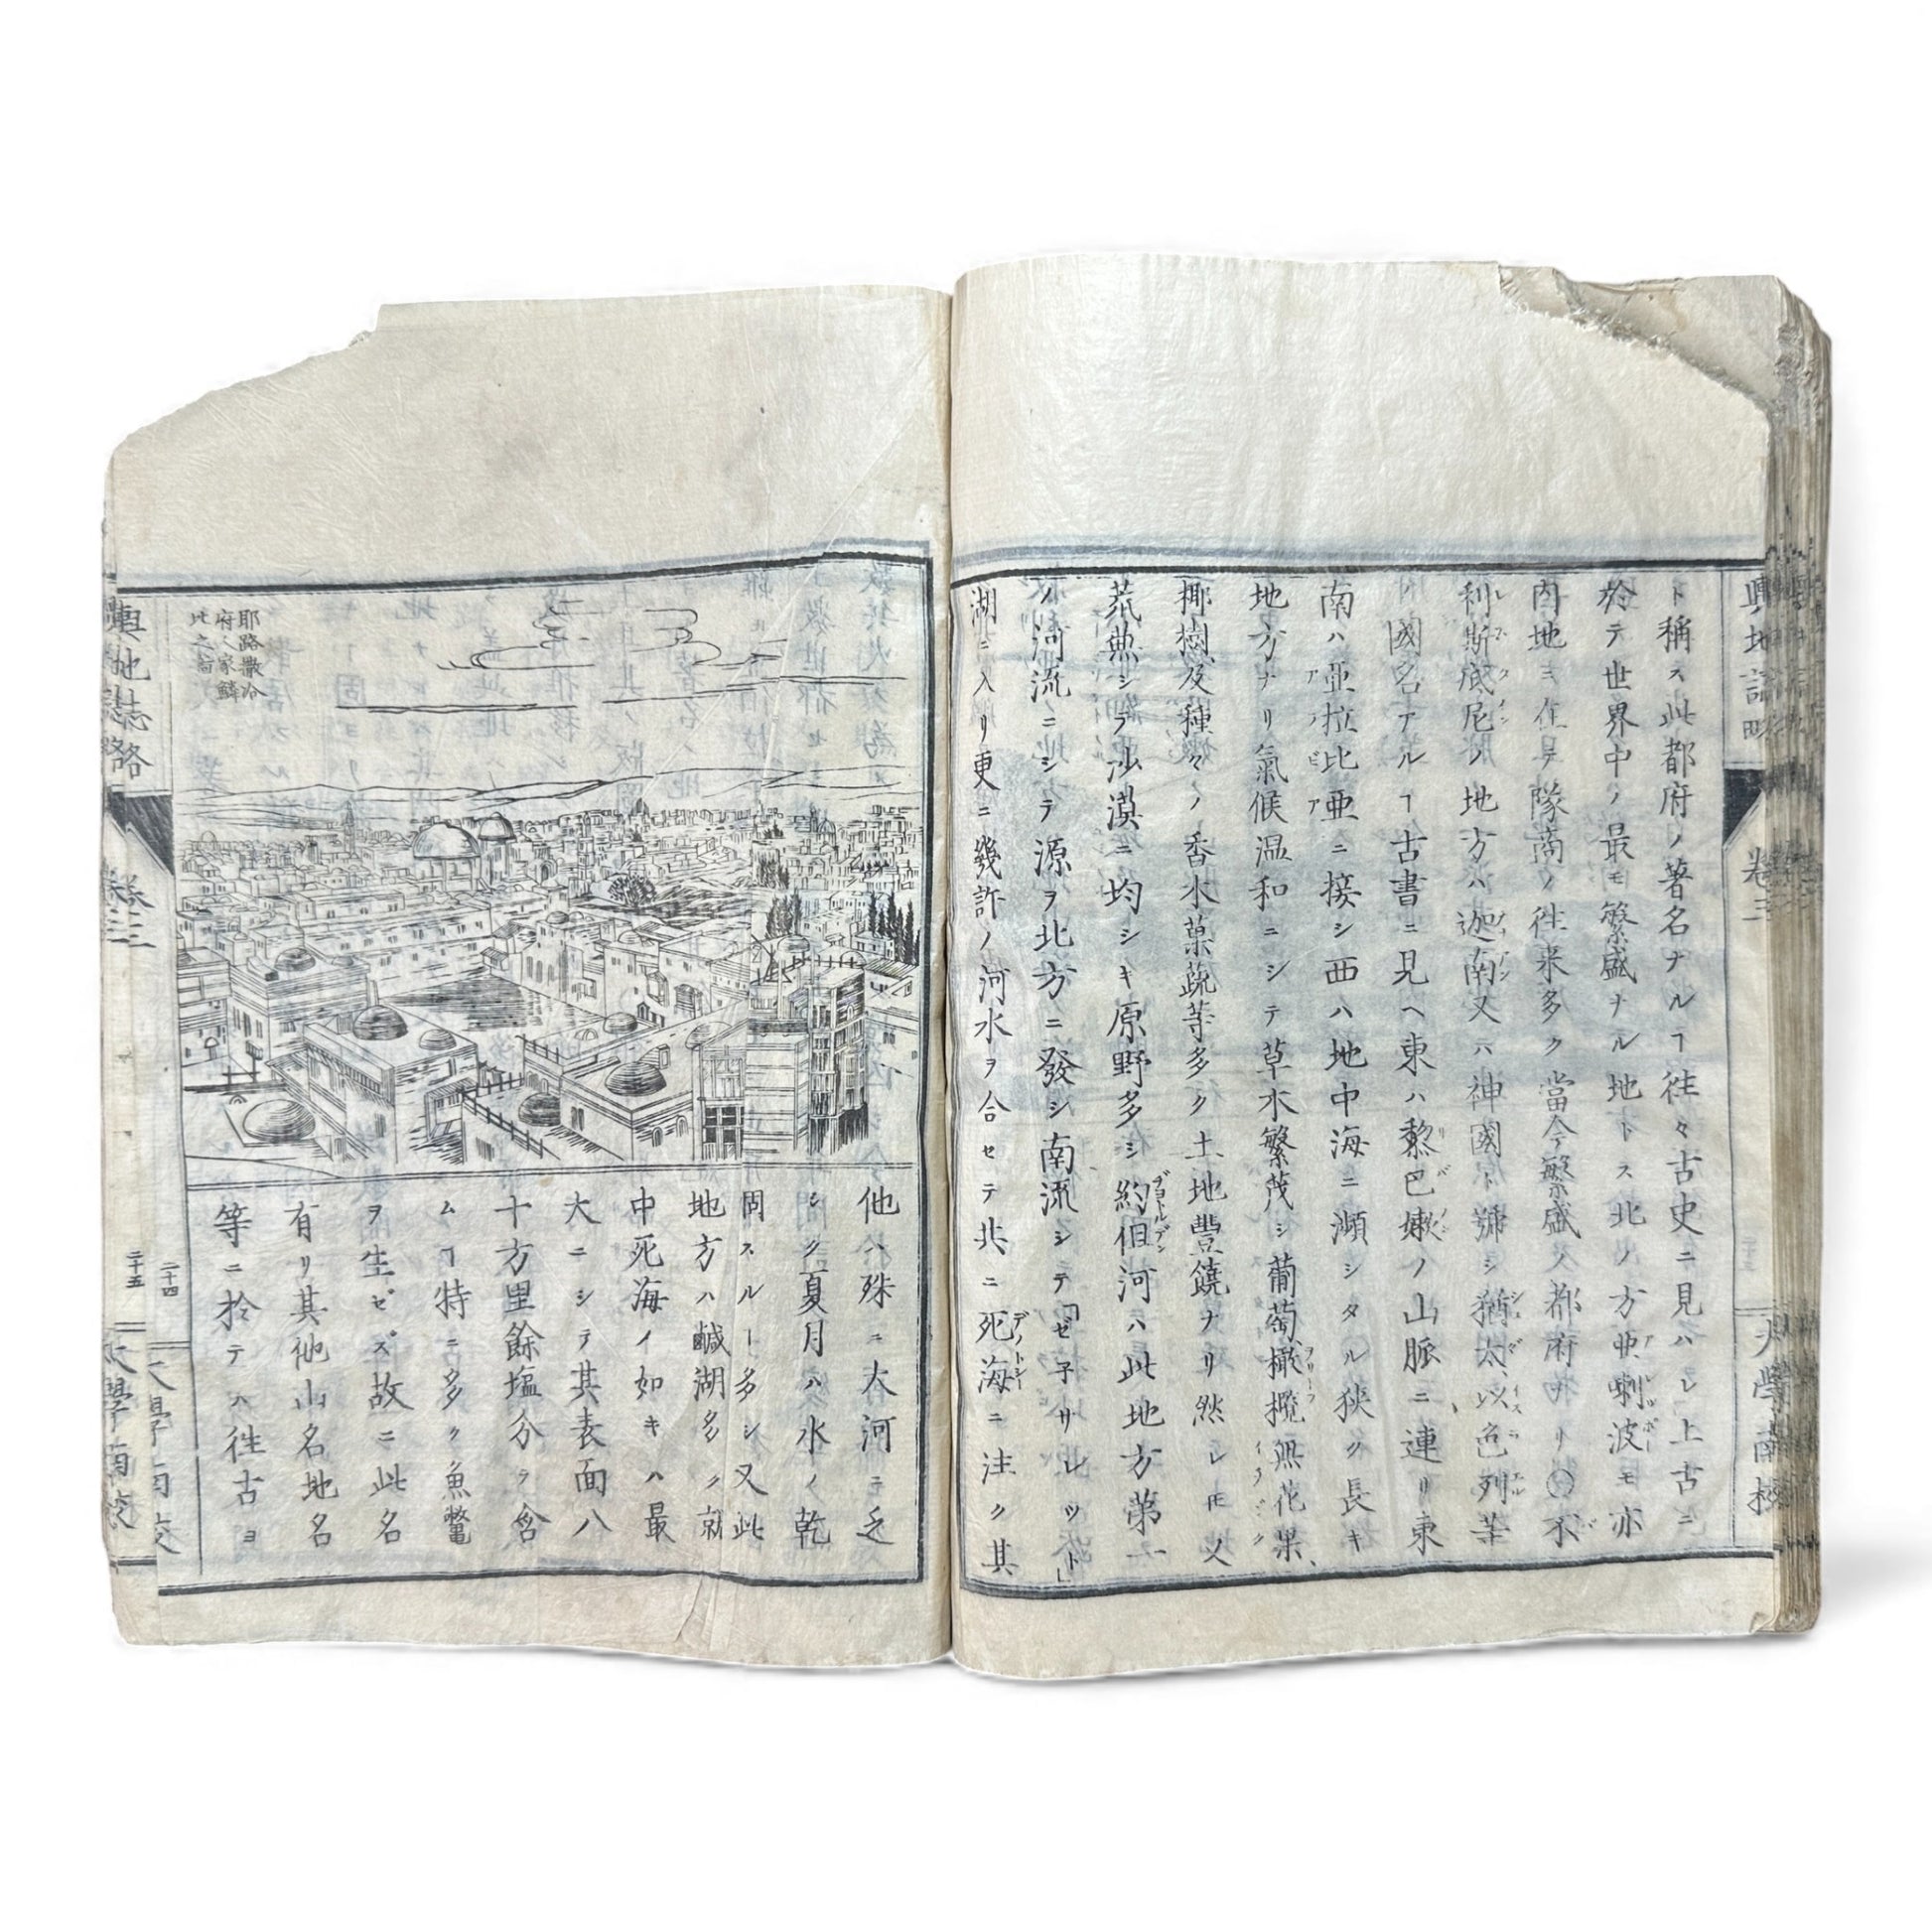 ト稱ス此都府ノ著名ナルヿ往々古史ニ見ハレ上古ニ
於テ世界中ノ最モ繁盛ナル地トス北リ方亜喇波モ亦
内地ニ在テ隊商ノ往来多ク當今繁盛ノ都府ナリ〇不
利斯底尼ノ地方ハ迦南又ハ神國ト號シ猶太、以色列等
ノ國名アルヿ古書ニ見ヘ東ハ黎巴嫩ノ山脈ニ連リ東
南ハ亜拉比亜ニ接シ西ハ地中海ニ瀕シタル狹ク長キ
地方ナリ氣候温和ニシテ草木繁茂シ葡萄、橄欖無花果、
椰樹及種々ノ香木菓蔬等多ク土地豐饒ナリ然レ𪜈又
荒無シテ沙漠ニ均シキ原野多シ約但河ハ此地方第一
ノ河流ニシテ源ヲ北方ニ發シ南流シテ「ゼ子サレット」
湖ニ入リ更ニ幾許ノ河水ヲ合セテ共ニ死海ニ注ク其
耶路撒冷
府人家鱗
比之圖
他ハ殊ニ大河モ乏
シク夏月ハ水ノ乾
固スルー多シ又此
地方ハ鹹湖多ク就
中死海イ如キハ最
大ニシテ其表面八
十方里餘塩分ヲ含
ムヿ特ニ多ク魚鼈
ヲ生ゼズ故ニ此名
有リ其他山名地名
等ニ於テハ往古ヨ
輿地誌略
卷三
二十四
二十五
大學南校